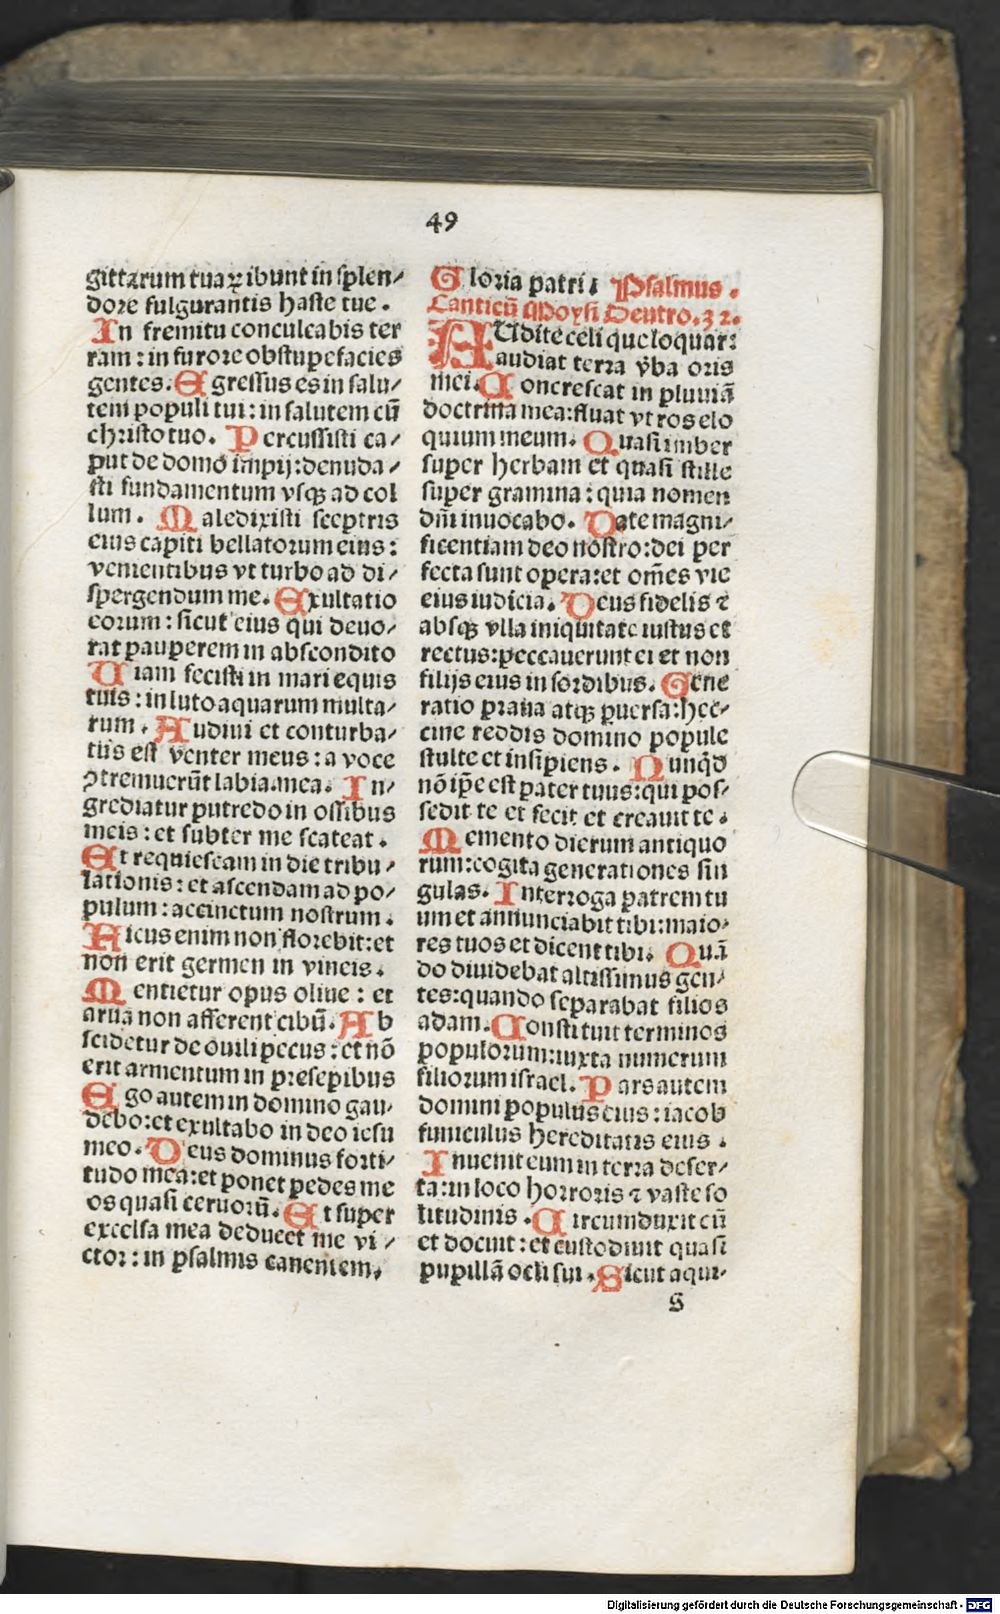 49
gittarum tuaꝝ ibunt in splen⸗
dore fulgurantis haste tue.
In fremitu conculcabis ter
ram: in furore obstupefacies
gentes. Egressus es in salu⸗
tem populi tui: in salutem cū
christo tuo. Percussisti ca⸗
put de domo impij: denuda⸗
sti fundamentum vsqꝫ ad col
lum. Maledixisti sceptris
eius capiti bellatorum eius:
venientibus vt turbo ad di⸗
spergendum me. Exultatio
eorum: sicut eius qui deuo⸗
rat pauperem in abscondito
Uiam fecisti in mari equis
tuis: in luto aquarum multa⸗
rum. Audiui et conturba⸗
tus est venter meus: a voce
ꝯtremuerūt labia mea. In⸗
grediatur putredo in ossibus
meis: et subter me scateat.
Et requiescam in die tribu⸗
lationis: et ascendam ad po⸗
pulum: accinctum nostrum.
Ficus enim non florebit: et
non erit germen in vineis.
Mentietur opus oliue: et
arua non afferent cibū. Ab
scidetur de ouili pecus: et nō
erit armentum in presepibus
Ego autem in domino gau⸗
debo: et exultabo in deo iesu
meo. Deus dominus forti⸗
tudo mea: et ponet pedes me
os quasi ceruorū. Et super
excelsa mea deducet me vi⸗
ctor: in psalmis canentem.
Gloria patri. Psalmus.
Canticū Moysi Deutro. 32.
AUdite celi que loquar:
audiat terra v̄ba oris
mei. Concrescat in pluuiā
doctrina mea: fluat vt ros elo
quium meum. Quasi imber
super herbam et quasi stille
super gramina: quia nomen
dn̄i inuocabo. Date magni⸗
ficentiam deo nostro: dei per
fecta sunt opera: et om̄es vie
eius iudicia. Deus fidelis ⁊
absqꝫ vlla iniquitate iustus et
rectus: peccauerunt ei et non
filijs eius in sordibus. Gene
ratio praua atqꝫ puersa: hec⸗
cine reddis domino popule
stulte et insipiens. Nunqͥd
nō ip̄e est pater tuus: qui pos⸗
sedit te et fecit et creauit te.
Memento dierum antiquo
rum: cogita generationes sin
gulas. Interroga patrem tu
um et annunciabit tibi: maio⸗
res tuos et dicent tibi. Quā
do diuidebat altissimus gen⸗
tes: quando separabat filios
adam. Constituit terminos
populorum: iuxta numerum
filiorum israel. Pars autem
domini populus eius: iacob
funiculus hereditatis eius.
Inuenit eum in terra deser⸗
ta: in loco horroris ⁊ vaste so
litudinis. Circumduxit cū
et docuit: et custodiuit quasi
pupillā ocli sui. Sicut aqui⸗
S
Digitalisierung gefördert durch die Deutsche Forschungsgemeinschaft - DFG